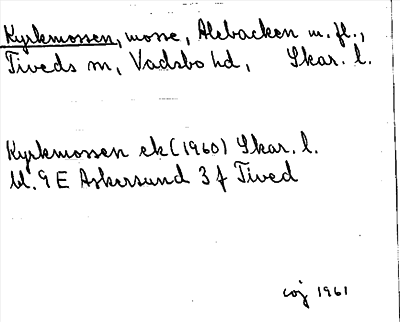 Kyrkmossen, mosse, Alebacken m. fl.,
Tiveds sn, Vadsbo hd, Skar. l.
Kyrkmossen ek (1960) Skar. l.
bl. 9 E Askersund 3 f Tived
1961